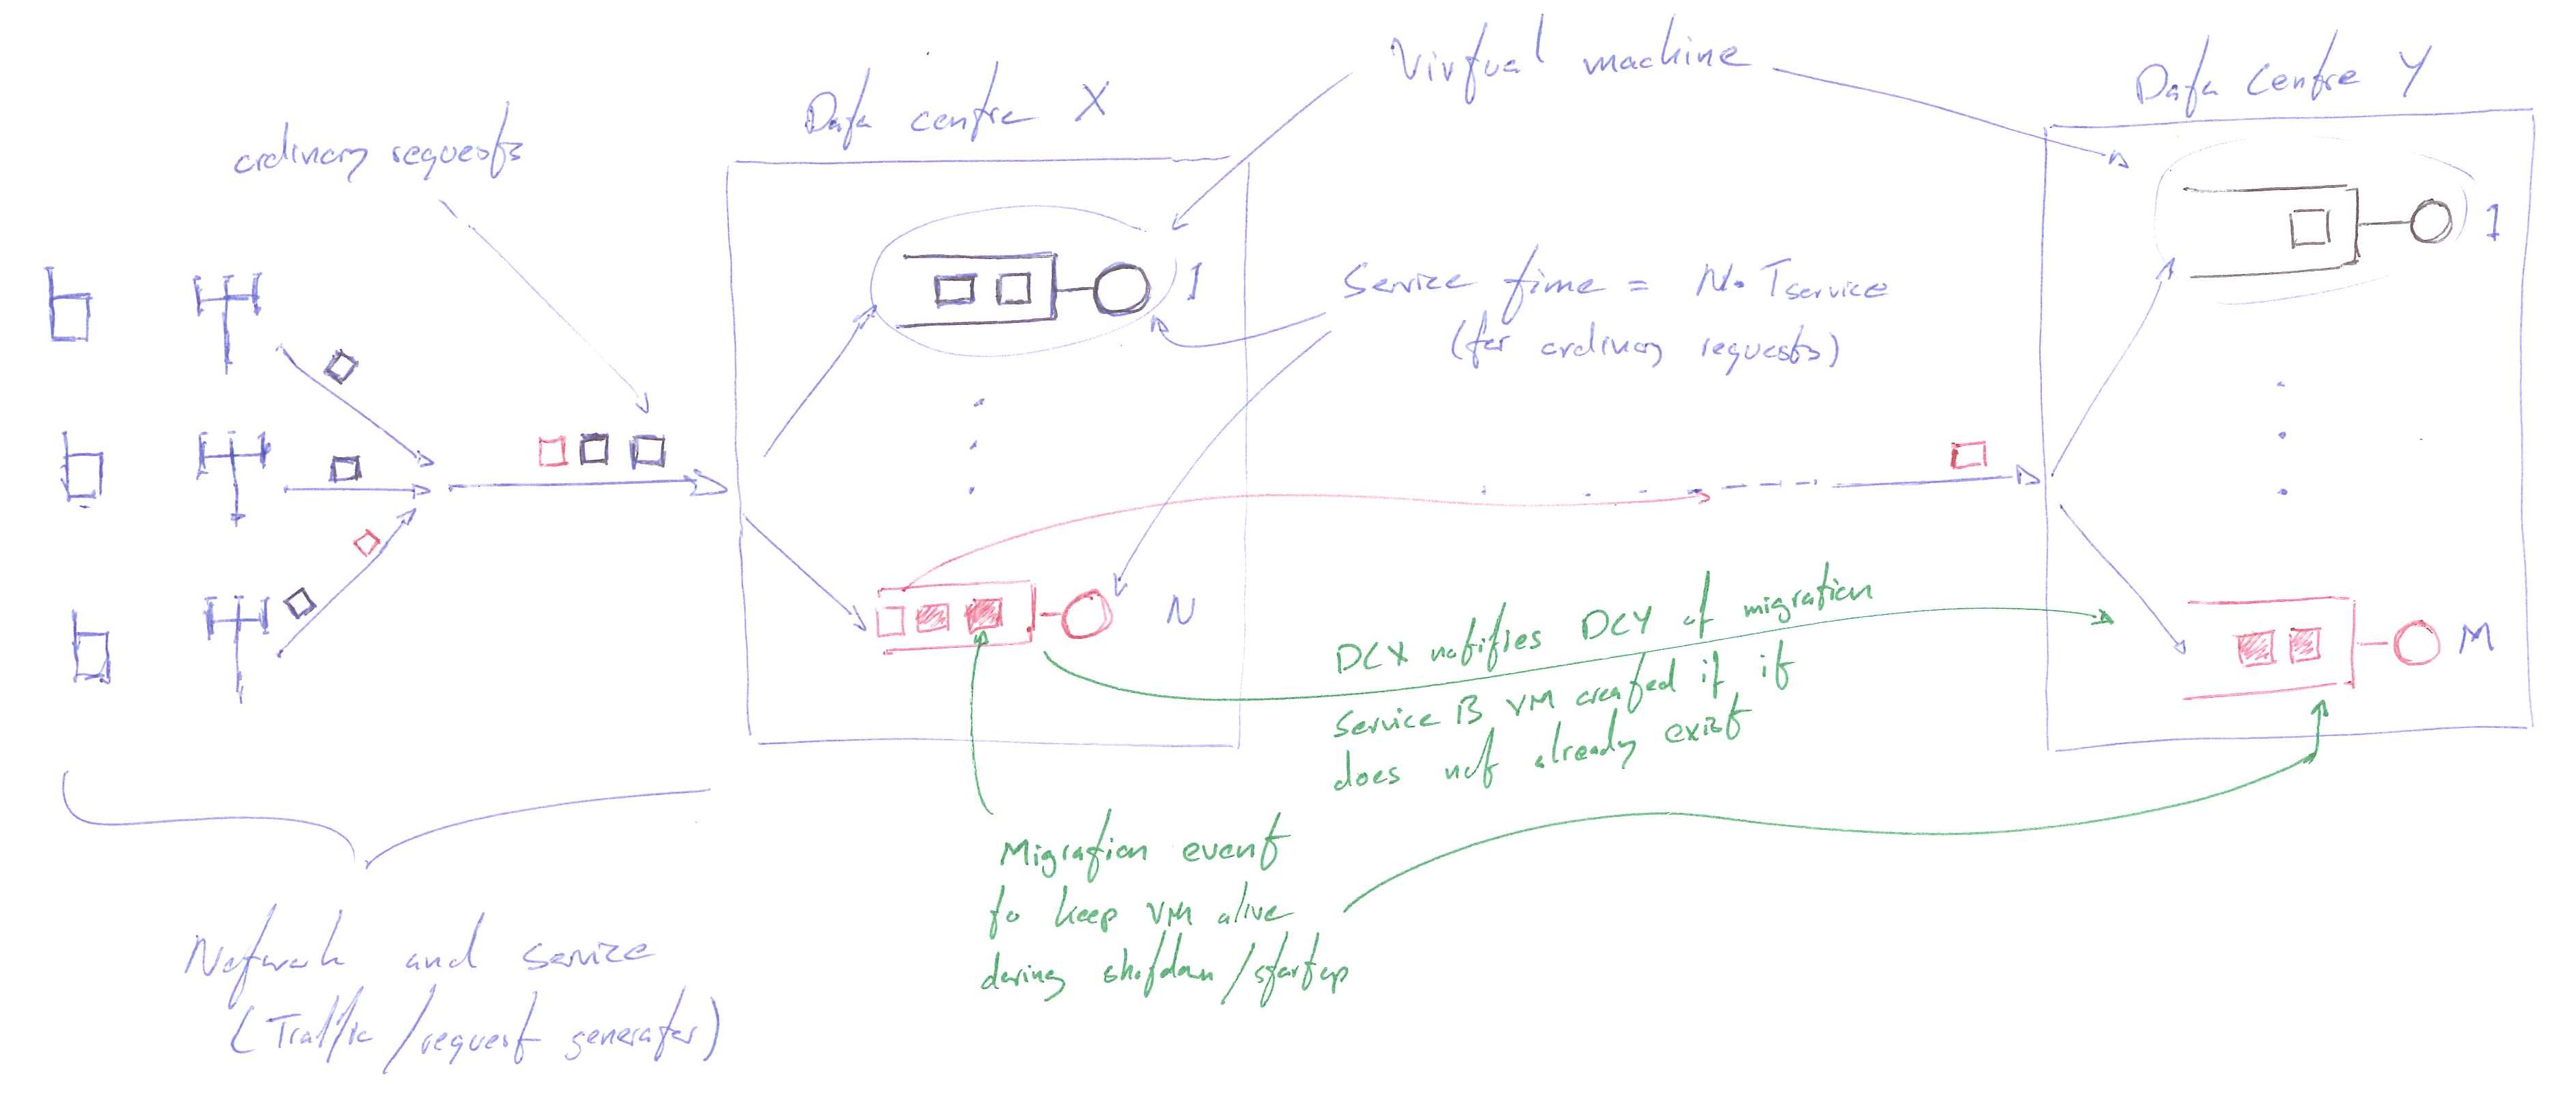 Virtual machine
Data centre X
Data Centre Y
ordinary requests
1
1
Service time = N · Tservice
(for ordinary requests)
N
M
DCX notifies DCY of migration
Service B VM created if it
does not already exist
Migration event
to keep VM alive
during shutdown/startup
Network and service
(Traffic/request generator)